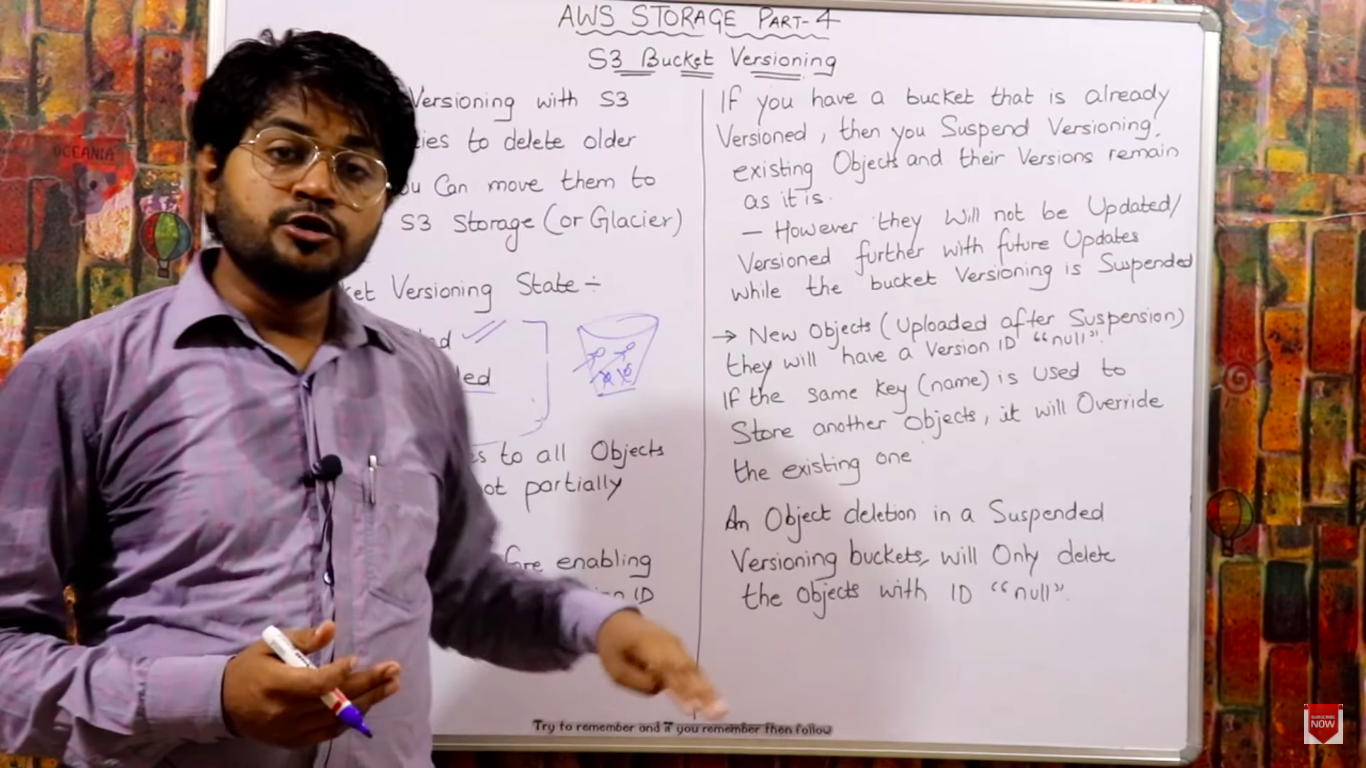 AWS STORAGE PART-4
S3 Bucket Versioning
Versioning with S3
to delete older
Can move them to
S3 Storage (or Glacier)
Versioning State :-
to all Objects
partially
enabling
ID
IF you have a bucket that is already
Versioned, then you Suspend Versioning,
existing Objects and their Versions remain
as it is.
- However they Will not be Updated/
Versioned further with future Updates
while the bucket Versioning is Suspended
→ New Objects (Uploaded after Suspension)
they will have a Version ID "null".
IF the same key (name) is used to
Store another Objects, it will Override
the existing one
An Object deletion in a Suspended
Versioning buckets, will Only delete
the objects with ID "null".
OCEANIA
Try to remember and if you remember then follow
SUBSCRIBE
NOW